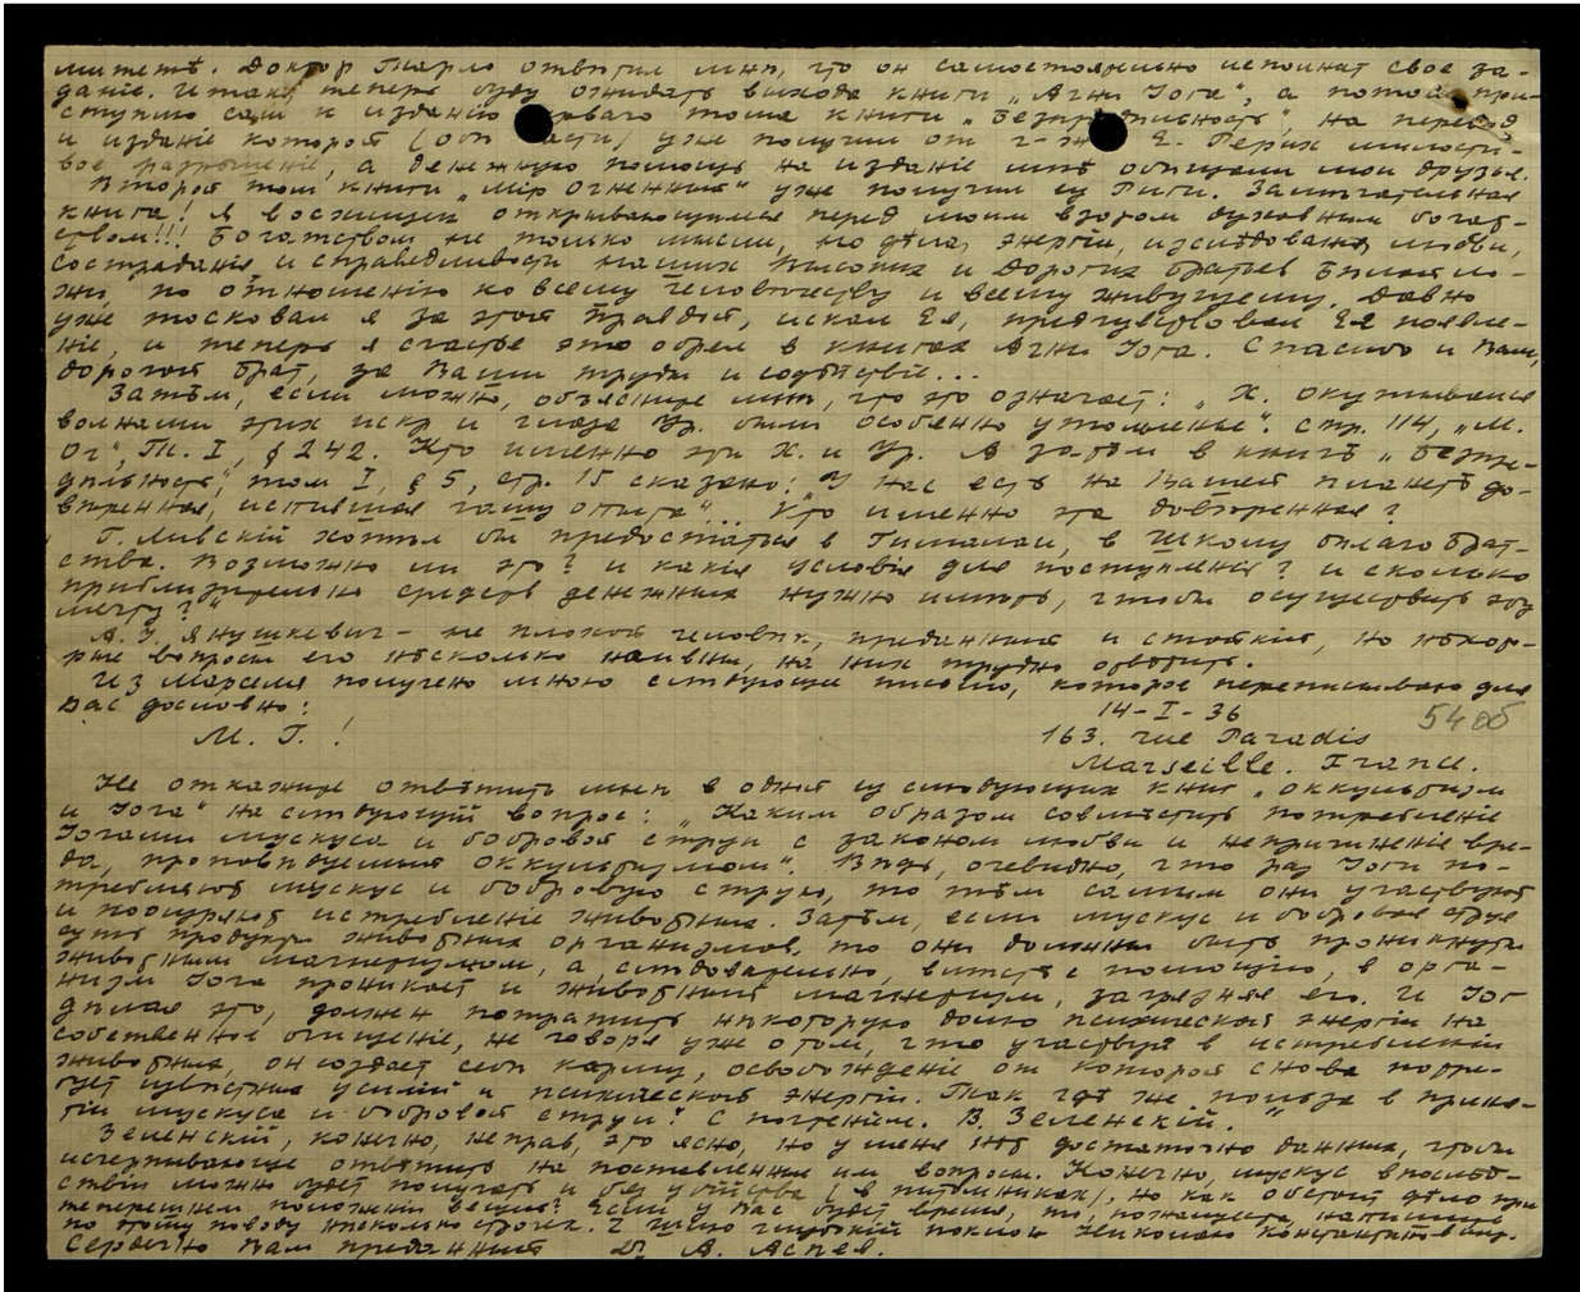 митетѣ. Доктор Тарло отвѣтил мнѣ, что он самостоятельно исполнит свое за-
даніе. Итак, теперь буду ожидать выхода книги „Агни Іога“, а потом при-
ступлю сам к изданію перваго тома книги „Безпредѣльность“, на перевод
и изданіе которой (обѣ части) уже получил от г-жи Е. Рерих милости-
вое разрѣшеніе, а денежную помощь на изданіе мнѣ обѣщали мои друзья.
Второй том книги „Мір Огненный“ уже получил из Риги. Замѣчательная
книга! Я восхищен открывающимся перед моим взором духовным богат-
ством!!! Богатством не только мысли, но дѣла, энергіи, изслѣдованія, любви,
состраданія и справедливости наших Высоких и Дорогих братьев Бѣлой Ло-
жи, по отношенію ко всему человѣчеству и всему живущему. Давно
уже тосковал я за этой Правдой, искал Ея, предчувствовал Ея появле-
ніе, и теперь я счастье это обрел в книгах Агни Іога. Спасибо и Вам,
дорогой брат, за Ваши труды и содѣйствіе...
Затѣм, если можно, объясните мнѣ, что это означает: „Х. окутывался
волнами этих искр и глаза Ур. были особенно утомлены“. стр. 114, „М.
Ог“, Т. I, § 242. Кто именно эти Х. и Ур. А затѣм в книгѣ „Безпре-
дѣльность“, том I, § 5, стр. 15 сказано: „У нас есть на Вашей планетѣ до-
вѣренная, испившая чашу опыта“... Кто именно эта довѣренная?
Г. Ливскій хотѣл бы предостаться в Гималаи, в школу бѣлаго брат-
ства. Возможно ли это? и какія условія для поступленія? и сколько
приблизительно средств денежных нужно имѣть, чтобы осуществить эту
мечту?“
А. У. Янушкевич – не плохой человѣк, преданный и стойкій, но нѣкото-
рые вопросы его нѣсколько наивны, на них трудно отвѣтить.
Из Марселя получено мною слѣдующее письмо, которое переписываю для
Вас дословно:
14-I-36
54 об
М. Г. !
163. rue Paradis
Marseille. France.
Не откажите отвѣтить мнѣ в одной из слѣдующих книг „Оккультизм
и Іога“ на слѣдующій вопрос: „Каким образом совмѣстить потребленіе
Іогами мускуса и бобровой струи с законом любви и непричиненіе вре-
да, проповѣдуемыя оккультизмом“. Вѣдь, очевидно, что раз Іоги по-
требляют мускус и бобровую струю, то тѣм самым они участвуют
и поощряют истребленіе животных. Затѣм, если мускус и бобровая струя
суть продукты животных организмов, то они должны быть проникнуты
животным магнетизмом, а, слѣдовательно, вмѣстѣ с помощью, в орга-
низм Іога проникает и животный магнетизм, загрязняя его. И Іог
дѣлая это, должен потратить нѣкоторую долю психической энергіи на
собственное очищеніе, не говоря уже о том, что участвуя в истребленіи
животных, он создает себѣ карму, освобожденіе от которой снова потре-
бует извѣстных усилій и психической энергіи. Так гдѣ же польза в приня-
тіи мускуса и бобровой струи? С почтеніем. В. Зеленскій.“
Зеленскій, конечно, неправ, это ясно, но у меня нѣт достаточно данных, чтобы
исчерпывающе отвѣтить на поставленные им вопросы. Конечно, мускус впослѣд-
ствіи можно будет получать и без убійства (в питомниках), но как обстоит дѣло при
теперешнем положеніи вещей? Если у Вас будет время, то, пожалуйста, напишите
по этому поводу нѣсколько строчек. Шлю глубокій поклон Николаю Константиновичу.
Сердечно Вам преданный Д. А. Асѣев.